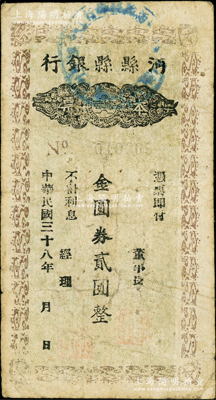 行銀縣縣沔
本票
No 010205
憑票即付
董事長
金圓券貳圓整
經理
不計利息
中華民國三十八年 月 日